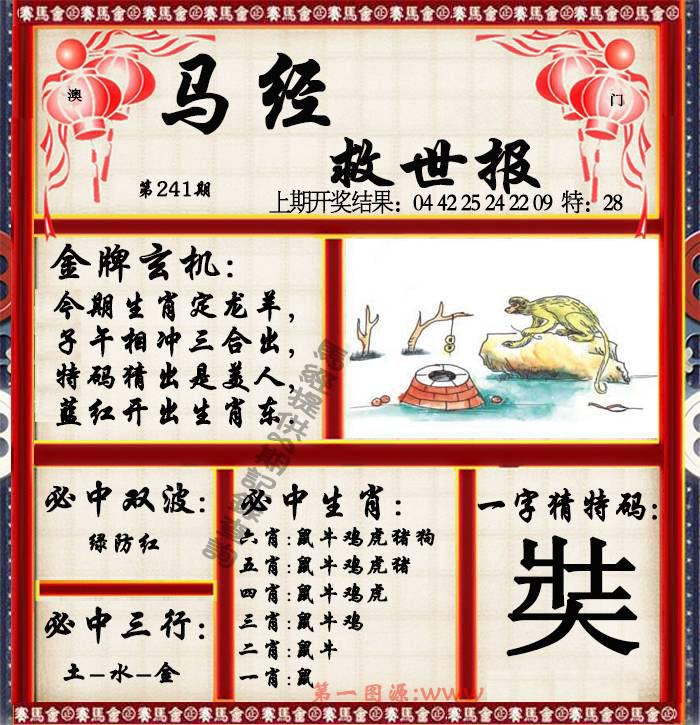 賽馬會正賽馬會正賽馬會正賽馬會正賽馬會正賽馬會正賽馬會
澳
门
马经
救世报
第241期
上期开奖结果：04 42 25 24 22 09 特：28
金牌玄机：
今期生肖定龙羊，
子午相冲三合出，
特码猜出是美人，
蓝红开出生肖东.
必中双波：
绿防红
必中三行：
土-水-金
必中生肖：
六肖:鼠牛鸡虎猪狗
五肖:鼠牛鸡虎猪
四肖:鼠牛鸡虎
三肖:鼠牛鸡
二肖:鼠牛
一肖:鼠
一字猜特码：
奘
第一图源:www